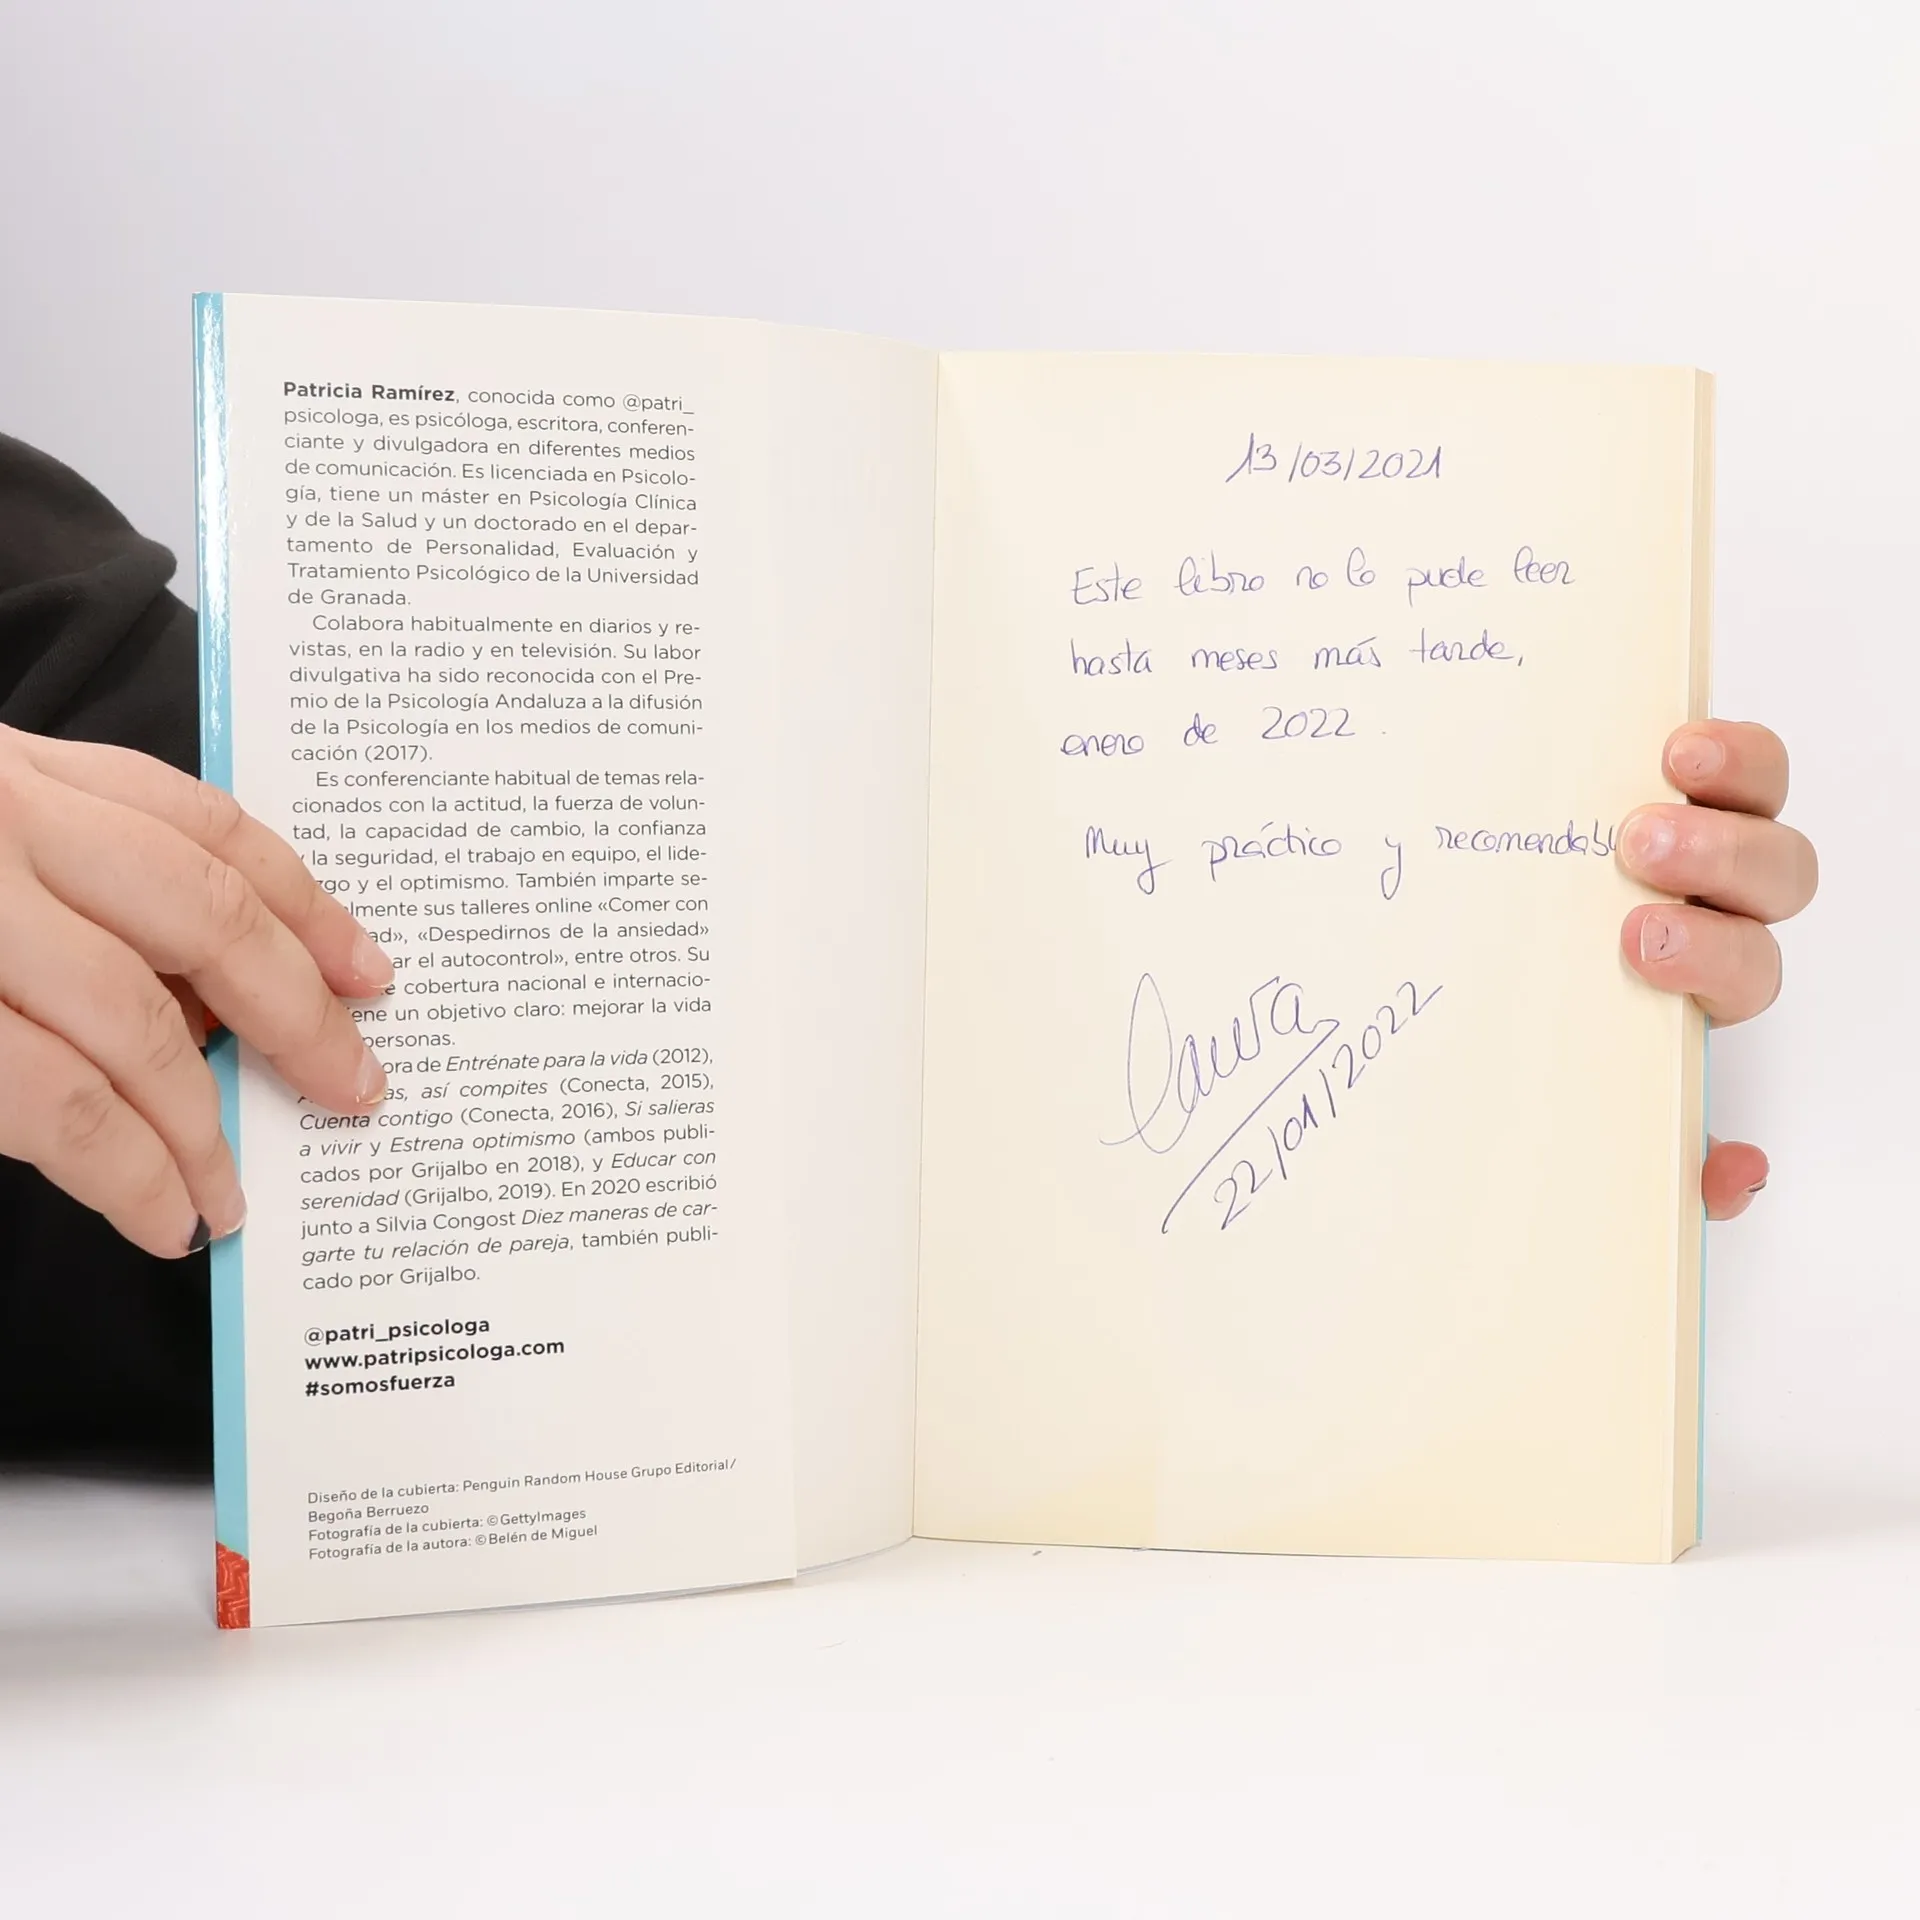 Patricia Ramírez, conocida como @patri_
psicologa, es psicóloga, escritora, conferen-
ciante y divulgadora en diferentes medios
de comunicación. Es licenciada en Psicolo-
gía, tiene un máster en Psicología Clínica
y de la Salud y un doctorado en el depar-
tamento de Personalidad, Evaluación y
Tratamiento Psicológico de la Universidad
de Granada.
Colabora habitualmente en diarios y re-
vistas, en la radio y en televisión. Su labor
divulgativa ha sido reconocida con el Pre-
mio de la Psicología Andaluza a la difusión
de la Psicología en los medios de comuni-
cación (2017).
Es conferenciante habitual de temas rela-
cionados con la actitud, la fuerza de volun-
tad, la capacidad de cambio, la confianza
la seguridad, el trabajo en equipo, el lide-
go y el optimismo. También imparte se-
lmente sus talleres online «Comer con
ad», «Despedirnos de la ansiedad»
ar el autocontrol», entre otros. Su
e cobertura nacional e internacio-
ene un objetivo claro: mejorar la vida
personas.
ora de Entrénate para la vida (2012),
as, así compites (Conecta, 2015),
Cuenta contigo (Conecta, 2016), Si salieras
a vivir y Estrena optimismo (ambos publi-
cados por Grijalbo en 2018), y Educar con
serenidad (Grijalbo, 2019). En 2020 escribió
junto a Silvia Congost Diez maneras de car-
garte tu relación de pareja, también publi-
cado por Grijalbo.
@patri_psicologa
www.patripsicologa.com
#somosfuerza
Diseño de la cubierta: Penguin Random House Grupo Editorial/
Begoña Berruezo
Fotografía de la cubierta: © GettyImages
Fotografía de la autora: © Belén de Miguel
13/03/2021
Este libro no lo pude leer
hasta meses más tarde,
enero de 2022.
Muy práctico y recomendabl
Laura
22/01/2022